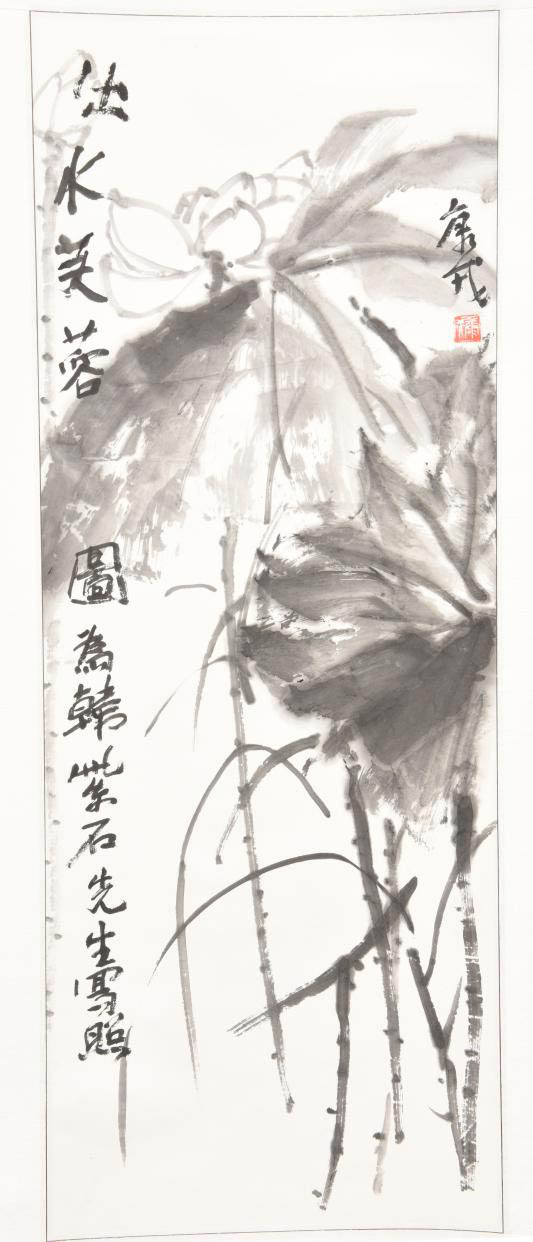 康戎
出水芙蓉
圖為韓紫石先生寫照